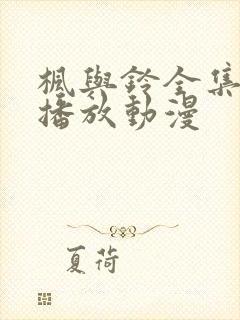 楓與鈴全集
播放動漫
夏荷